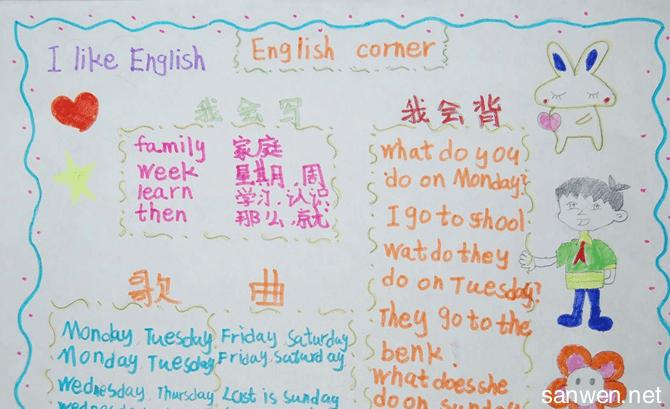 I like English
English corner
我会写
family 家庭
week 星期,周
learn 学习,认识
then 那么,就
我会背
what do you
do on Monday?
I go to shool
wat do they
do on Tuesday?
They go to the
benk.
what does she
do on sunday
歌曲
Monday, Tuesday, Friday, Saturday
Monday, Tuesday, Friday, Saturday
Wednesday, Thursday Last is Sunday
sanwen.net